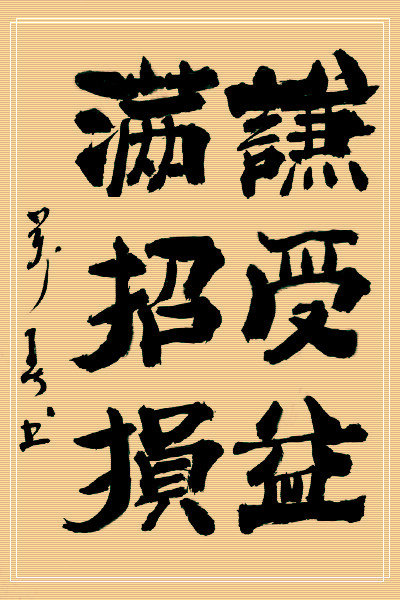 謙受益
满招損